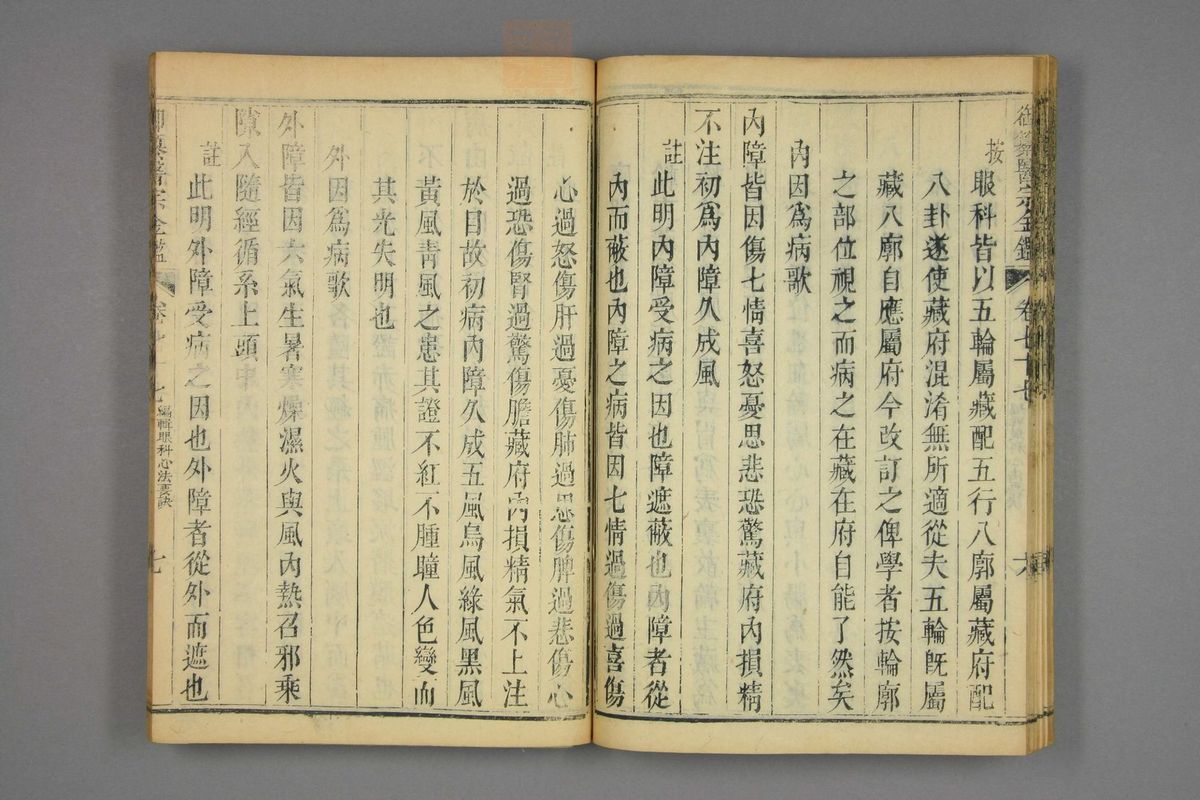 御纂醫宗金鑑 卷七十七 六
按
眼科皆以五輪屬藏配五行八廓屬藏府配
八卦遂使藏府混淆無所適從夫五輪既屬
藏八廓自應屬府今改訂之俾學者按輪廓
之部位視之而病之在藏在府自能了然矣
內因為病歌
內障皆因傷七情喜怒憂思悲恐驚藏府內損精
不注初為內障久成風
註
此明內障受病之因也障遮蔽也內障者從
內而蔽也內障之病皆因七情過傷過喜傷
心過怒傷肝過憂傷肺過思傷脾過悲傷心
過恐傷腎過驚傷膽藏府內損精氣不上注
於目故初病內障久成五風烏風綠風黑風
黃風青風之患其證不紅不腫瞳人色變而
其光失明也
外因為病歌
外障皆因六氣生暑寒燥濕火與風內熱召邪乘
隙入隨經循系上頭中
註
此明外障受病之因也外障者從外而遮也
御纂醫宗金鑑 卷七十七 編輯眼科心法要訣 七